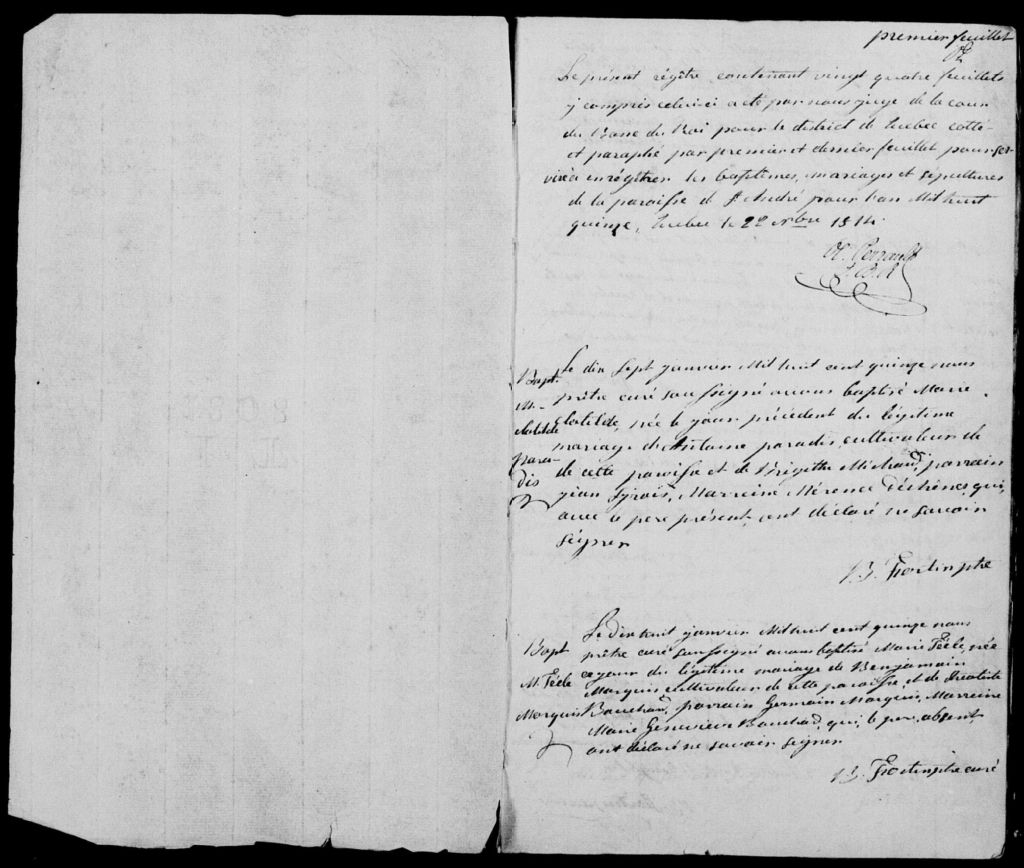 premier feuillet
Le présent régître contenant vingt quatre feuillets
y compris celui-ci a été par nous juge de la cour
du Banc du Roi pour le district de Quebec cotté
et paraphé par premier et dernier feuillet pour ser-
vir à enrégîtrer les baptêmes, mariages et sépultures
de la paroisse de St André pour l'an Mil huit
quinze, Quebec le 22 Nbre 1814.
Ol. Perrault
J. B. R
Bapt.
M.
Clotilde
Para-
dis
Le dix sept janvier Mil huit cent quinze nous
prêtre curé soussigné avons baptisé Marie
Clotilde, née le jour précédent du légitime
mariage de Antoine paradis cultivateur de
de cette paroisse et de Brigitte Michaud, parrain
jean Syrois, Marreine Mérence Déchênes, qui,
avec le pere présent, ont déclaré ne savoir
signer
B. Fortin ptre
Bapt
M. Fécle
Marquis
Le dix huit janvier Mil huit cent quinze nous
prêtre curé soussigné avons baptisé Marie Fécle, née
ce jour du légitime mariage de Benjamain
Marquis cultivateur de cette paroisse, et de
Bouchard, parrain Germain Marquis, Marreine
Marie Genevieve Bouchard, qui, le pere absent,
ont déclaré ne savoir signer
B. Fortin ptre curé